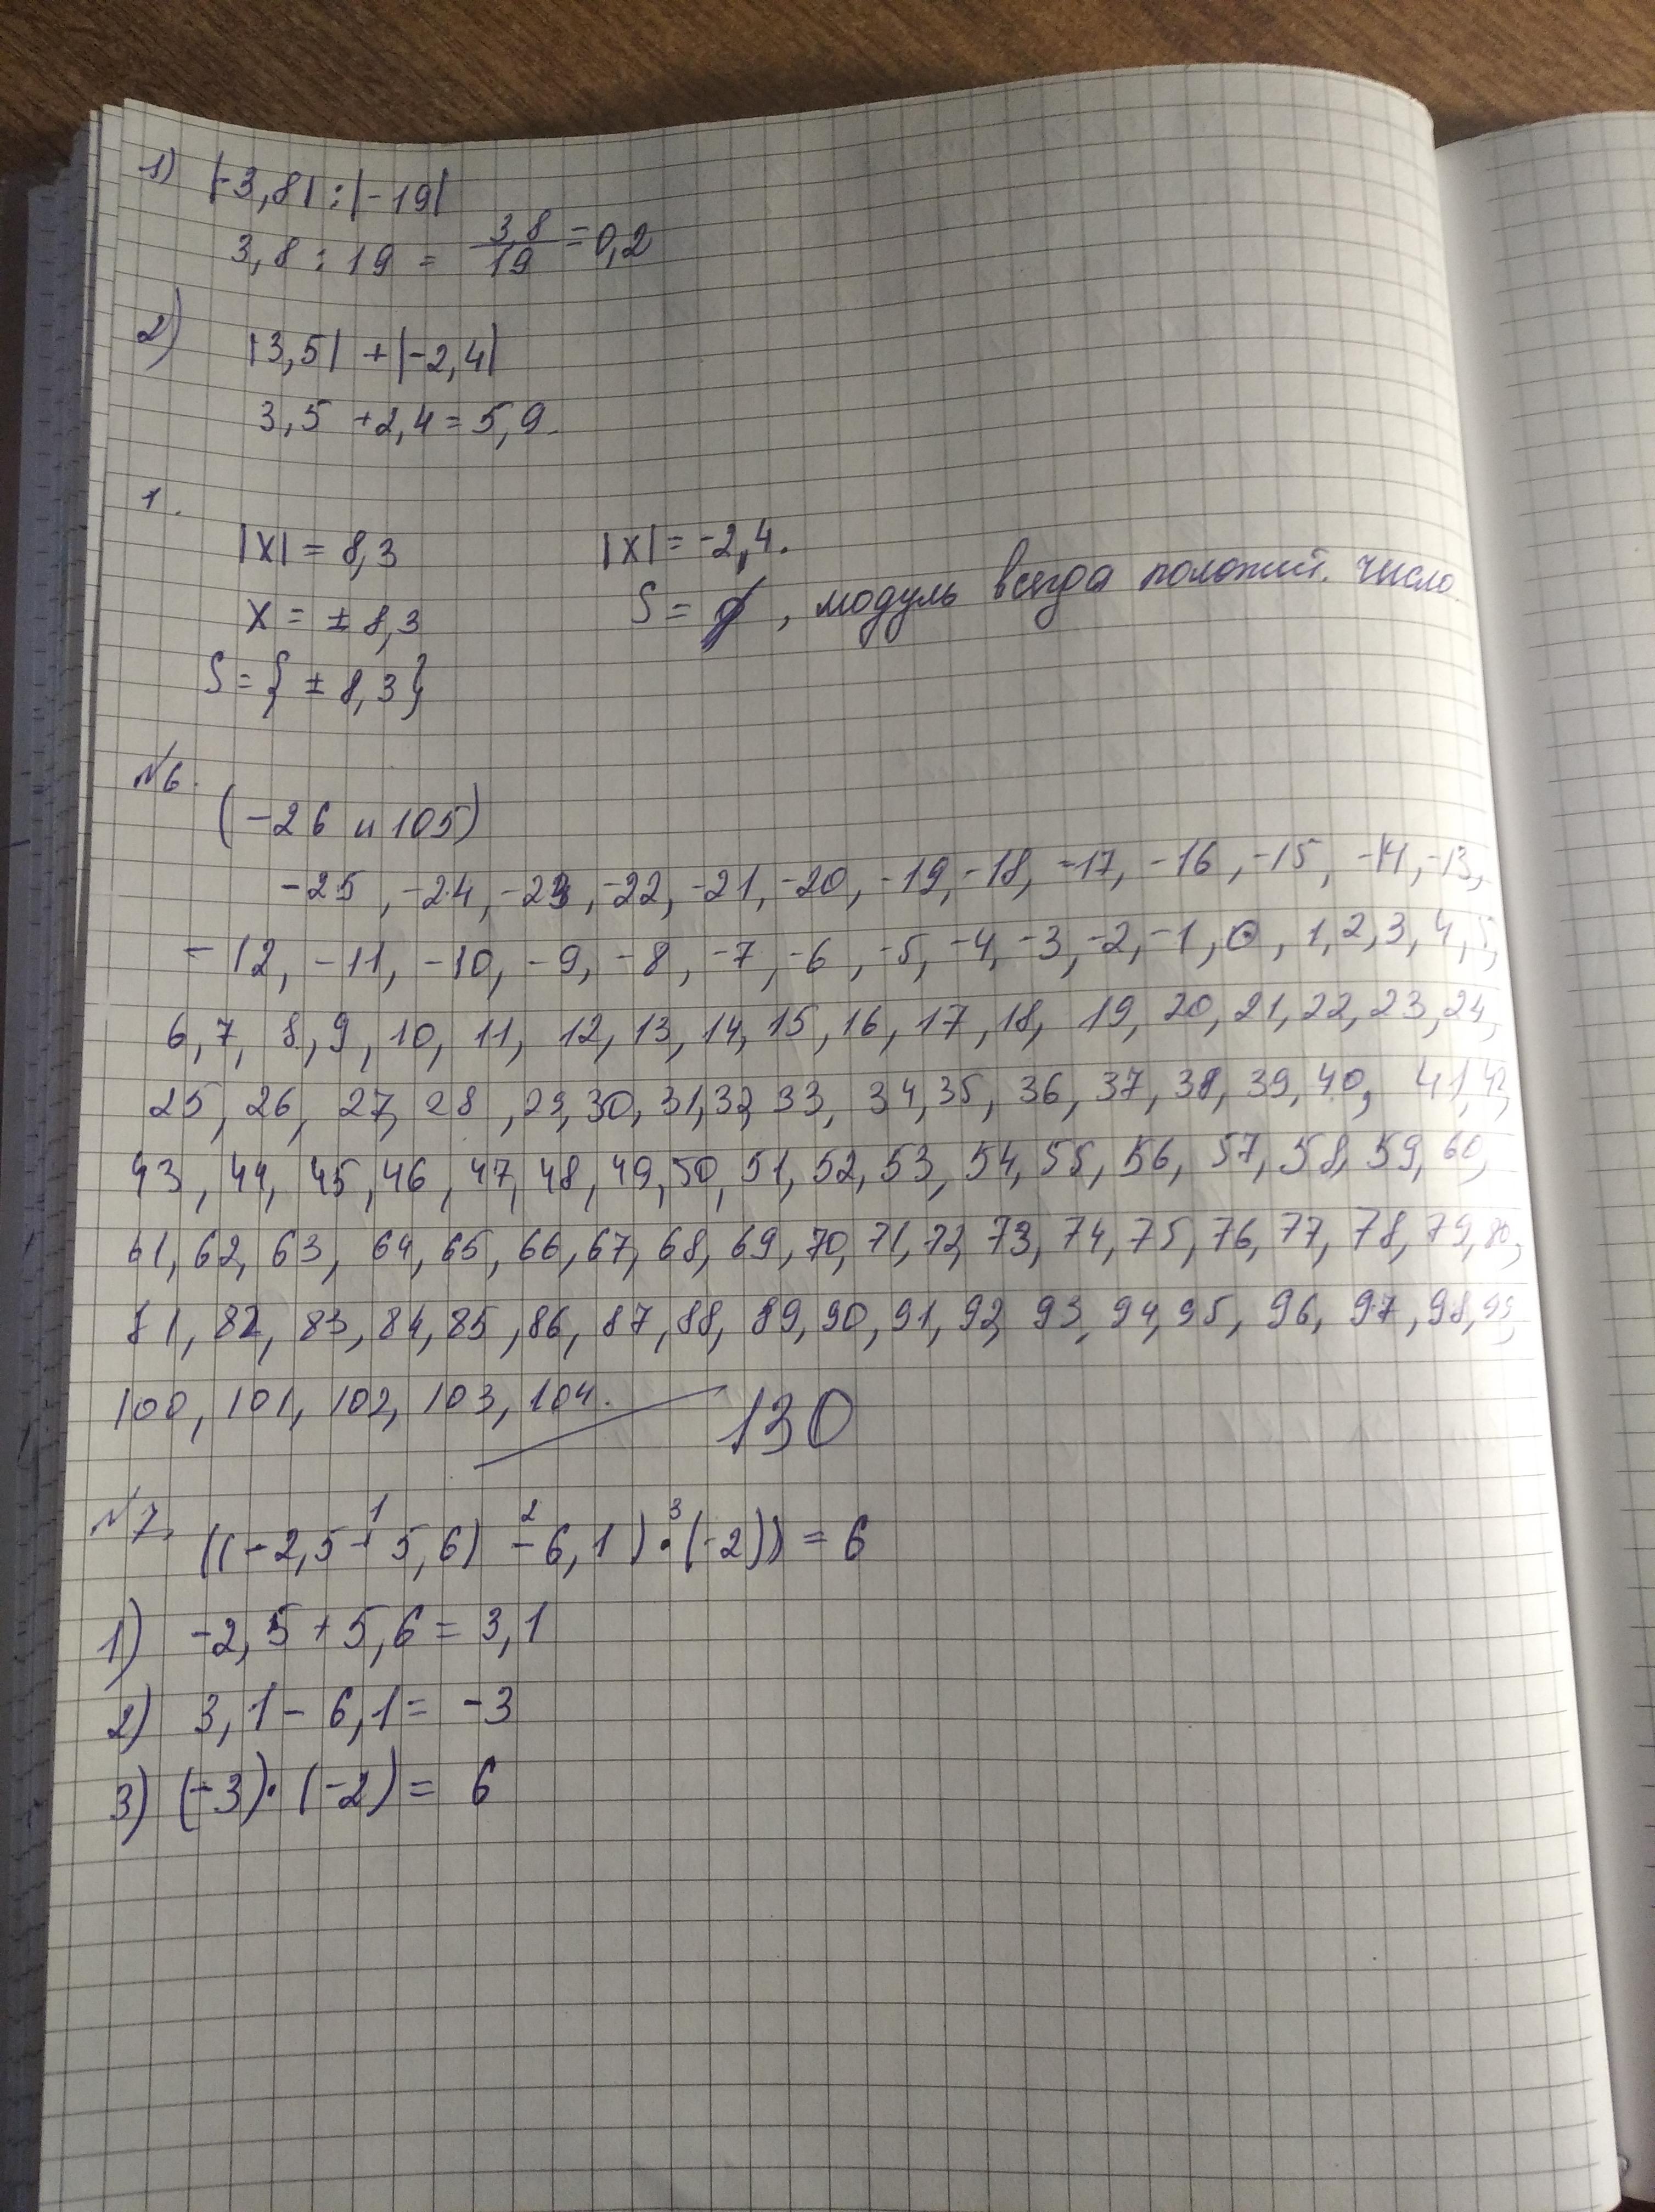 1) |-3,8| : |-19|
3,8 : 19 = 3,8/19 = 0,2
2) |3,5| + |-2,4|
3,5 + 2,4 = 5,9.
1.
|x| = 8,3 |x| = -2,4.
x = ± 8,3 S = ∅, модуль всегда положит. число.
S = { ± 8,3 }
№6.
(-26 и 105)
-25, -24, -23, -22, -21, -20, -19, -18, -17, -16, -15, -14, -13,
-12, -11, -10, -9, -8, -7, -6, -5, -4, -3, -2, -1, 0, 1, 2, 3, 4, 5,
6, 7, 8, 9, 10, 11, 12, 13, 14, 15, 16, 17, 18, 19, 20, 21, 22, 23, 24,
25, 26, 27, 28, 29, 30, 31, 32, 33, 34, 35, 36, 37, 38, 39, 40, 41, 42,
43, 44, 45, 46, 47, 48, 49, 50, 51, 52, 53, 54, 55, 56, 57, 58, 59, 60,
61, 62, 63, 64, 65, 66, 67, 68, 69, 70, 71, 72, 73, 74, 75, 76, 77, 78, 79, 80,
81, 82, 83, 84, 85, 86, 87, 88, 89, 90, 91, 92, 93, 94, 95, 96, 97, 98, 99,
100, 101, 102, 103, 104. 130
1 2 3
№7. ((-2,5 + 5,6) - 6,1) · (-2)) = 6
1) -2,5 + 5,6 = 3,1
2) 3,1 - 6,1 = -3
3) (-3) · (-2) = 6